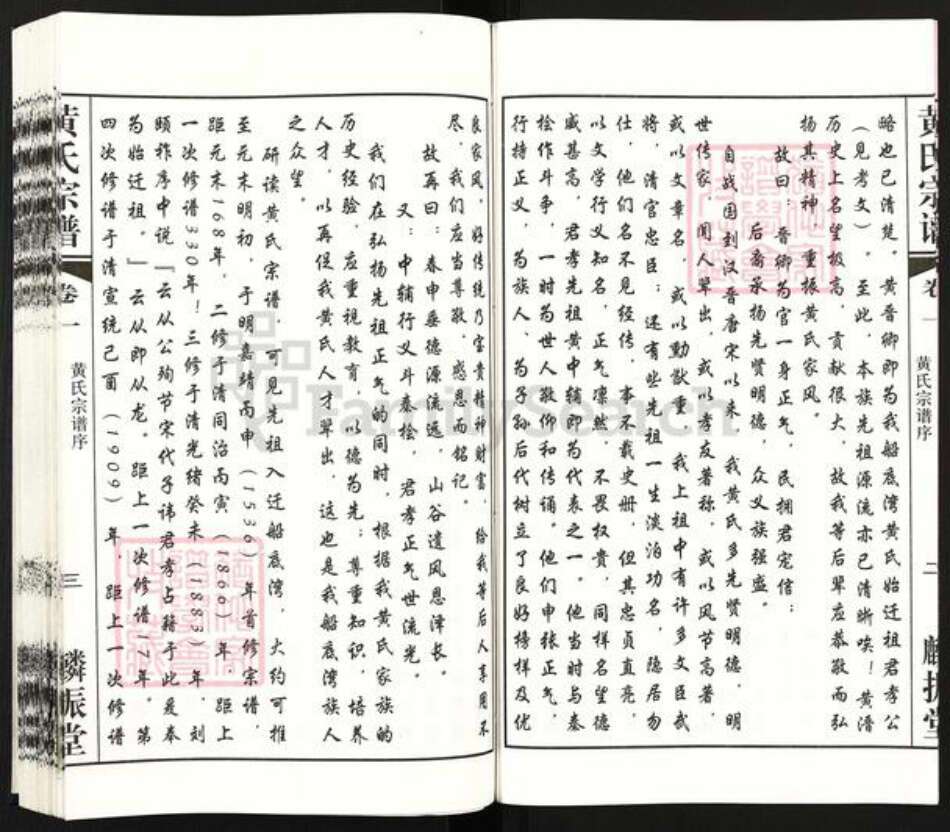 黄氏宗谱 卷一 黄氏宗谱序 二 麟振堂
略也已清楚。黄晋卿即为我船底湾黄氏始迁祖君孝公
（见考文）。至此，本族先祖源流亦已清晰唉！黄清
历史上名望极高，贡献很大，故我等后辈应恭敬而弘
扬其精神，重振黄氏家风。
故曰：晋卿为官一身正气，民拥君宠信；
后裔承扬先贤明德，众义族强盛。
自战国到汉晋唐宋以来，我黄氏多先贤明德，明
世传家，闻人辈出，或以孝友著称，或以风节高著，
或以文章名，或以勳猷重，我上祖中有许多文臣武
将，清官忠臣；还有些先祖一生淡泊功名，隐居勿
仕，他们名不见经传，事不载史册，但其忠贞直亮，
以文学行义知名，正气凛然，不畏权贵，同样名望德
威甚高，君孝先祖黄中辅即为代表之一。他当时与秦
桧作斗争，一时为世人敬仰和传诵。他们申张正气，
行持正义，为族人、为子孙后代树立了良好榜样及优
良家风，好传统乃宝贵精神财富，给我等后人享用不
尽，我们应当尊敬，感恩而铭记。
故再曰：春申晏德源流远，山谷遗风恩泽长。
又：中辅行义斗秦桧，君孝正气世流光。
我们在弘扬先祖正气的同时，根据我黄氏家族的
历史经验，应重视教育，以德为先；尊重知识，培养
人才，以再促我黄氏人才辈出，这也是我船底湾族人
之众望。
研读黄氏宗谱，可见先祖入迁船底湾，大约可推
至元末明初，于明嘉靖丙申（1536）年首修宗谱，
距元末168年，二修于清同治丙寅（1866）年，距上
一次修谱330年！三修于清光绪癸未（1883）年，刘
颐祚序中说『云从公殉节宋代子讳君孝占籍于此爰奉
为始迁祖。』云从即从龙。距上一次修谱17年。第
四次修谱于清宣统己酉（1909）年，距上一次修谱
黄氏宗谱 卷一 黄氏宗谱序 三 麟振堂
FamilySearch